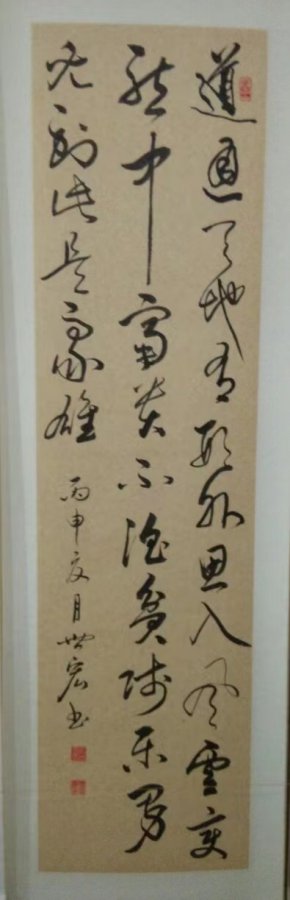 道通天地有形外思入风云变
态中富贵不淫贫贱乐男
儿到此是豪雄
丙申夏月世宏书